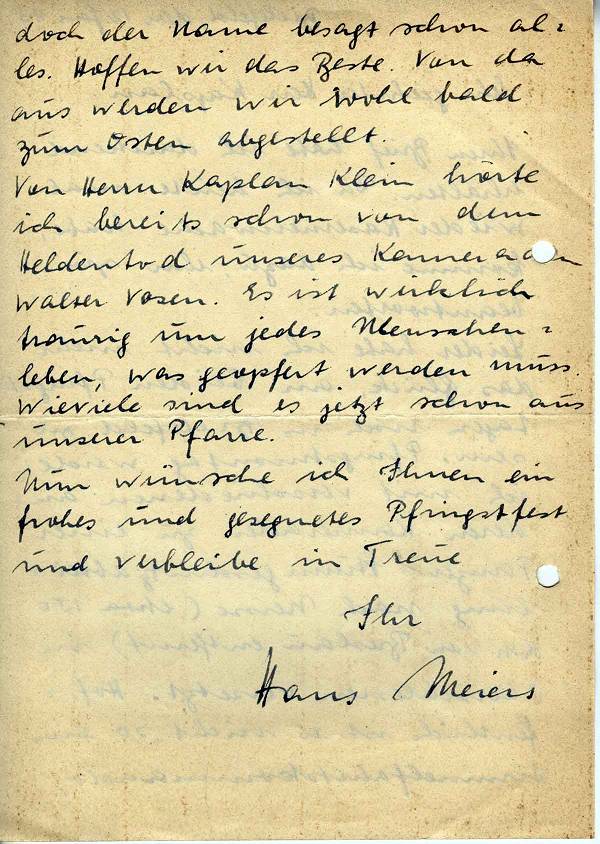 doch der Name besagt schon al=
les. Hoffen wir das Beste. Von da
aus werden wir wohl bald
zum Osten abgestellt.
Von Herrn Kaplan Klein hörte
ich bereits schon von dem
Heldentod unseres Kameraden
Walter Vosen. Es ist wirklich
traurig um jedes Menschen=
leben, was geopfert werden muss.
Wieviele sind es jetzt schon aus
unserer Pfarre.
Nun wünsche ich Ihnen ein
frohes und gesegnetes Pfingstfest
und verbleibe in Treue
Ihr
Hans Meiers